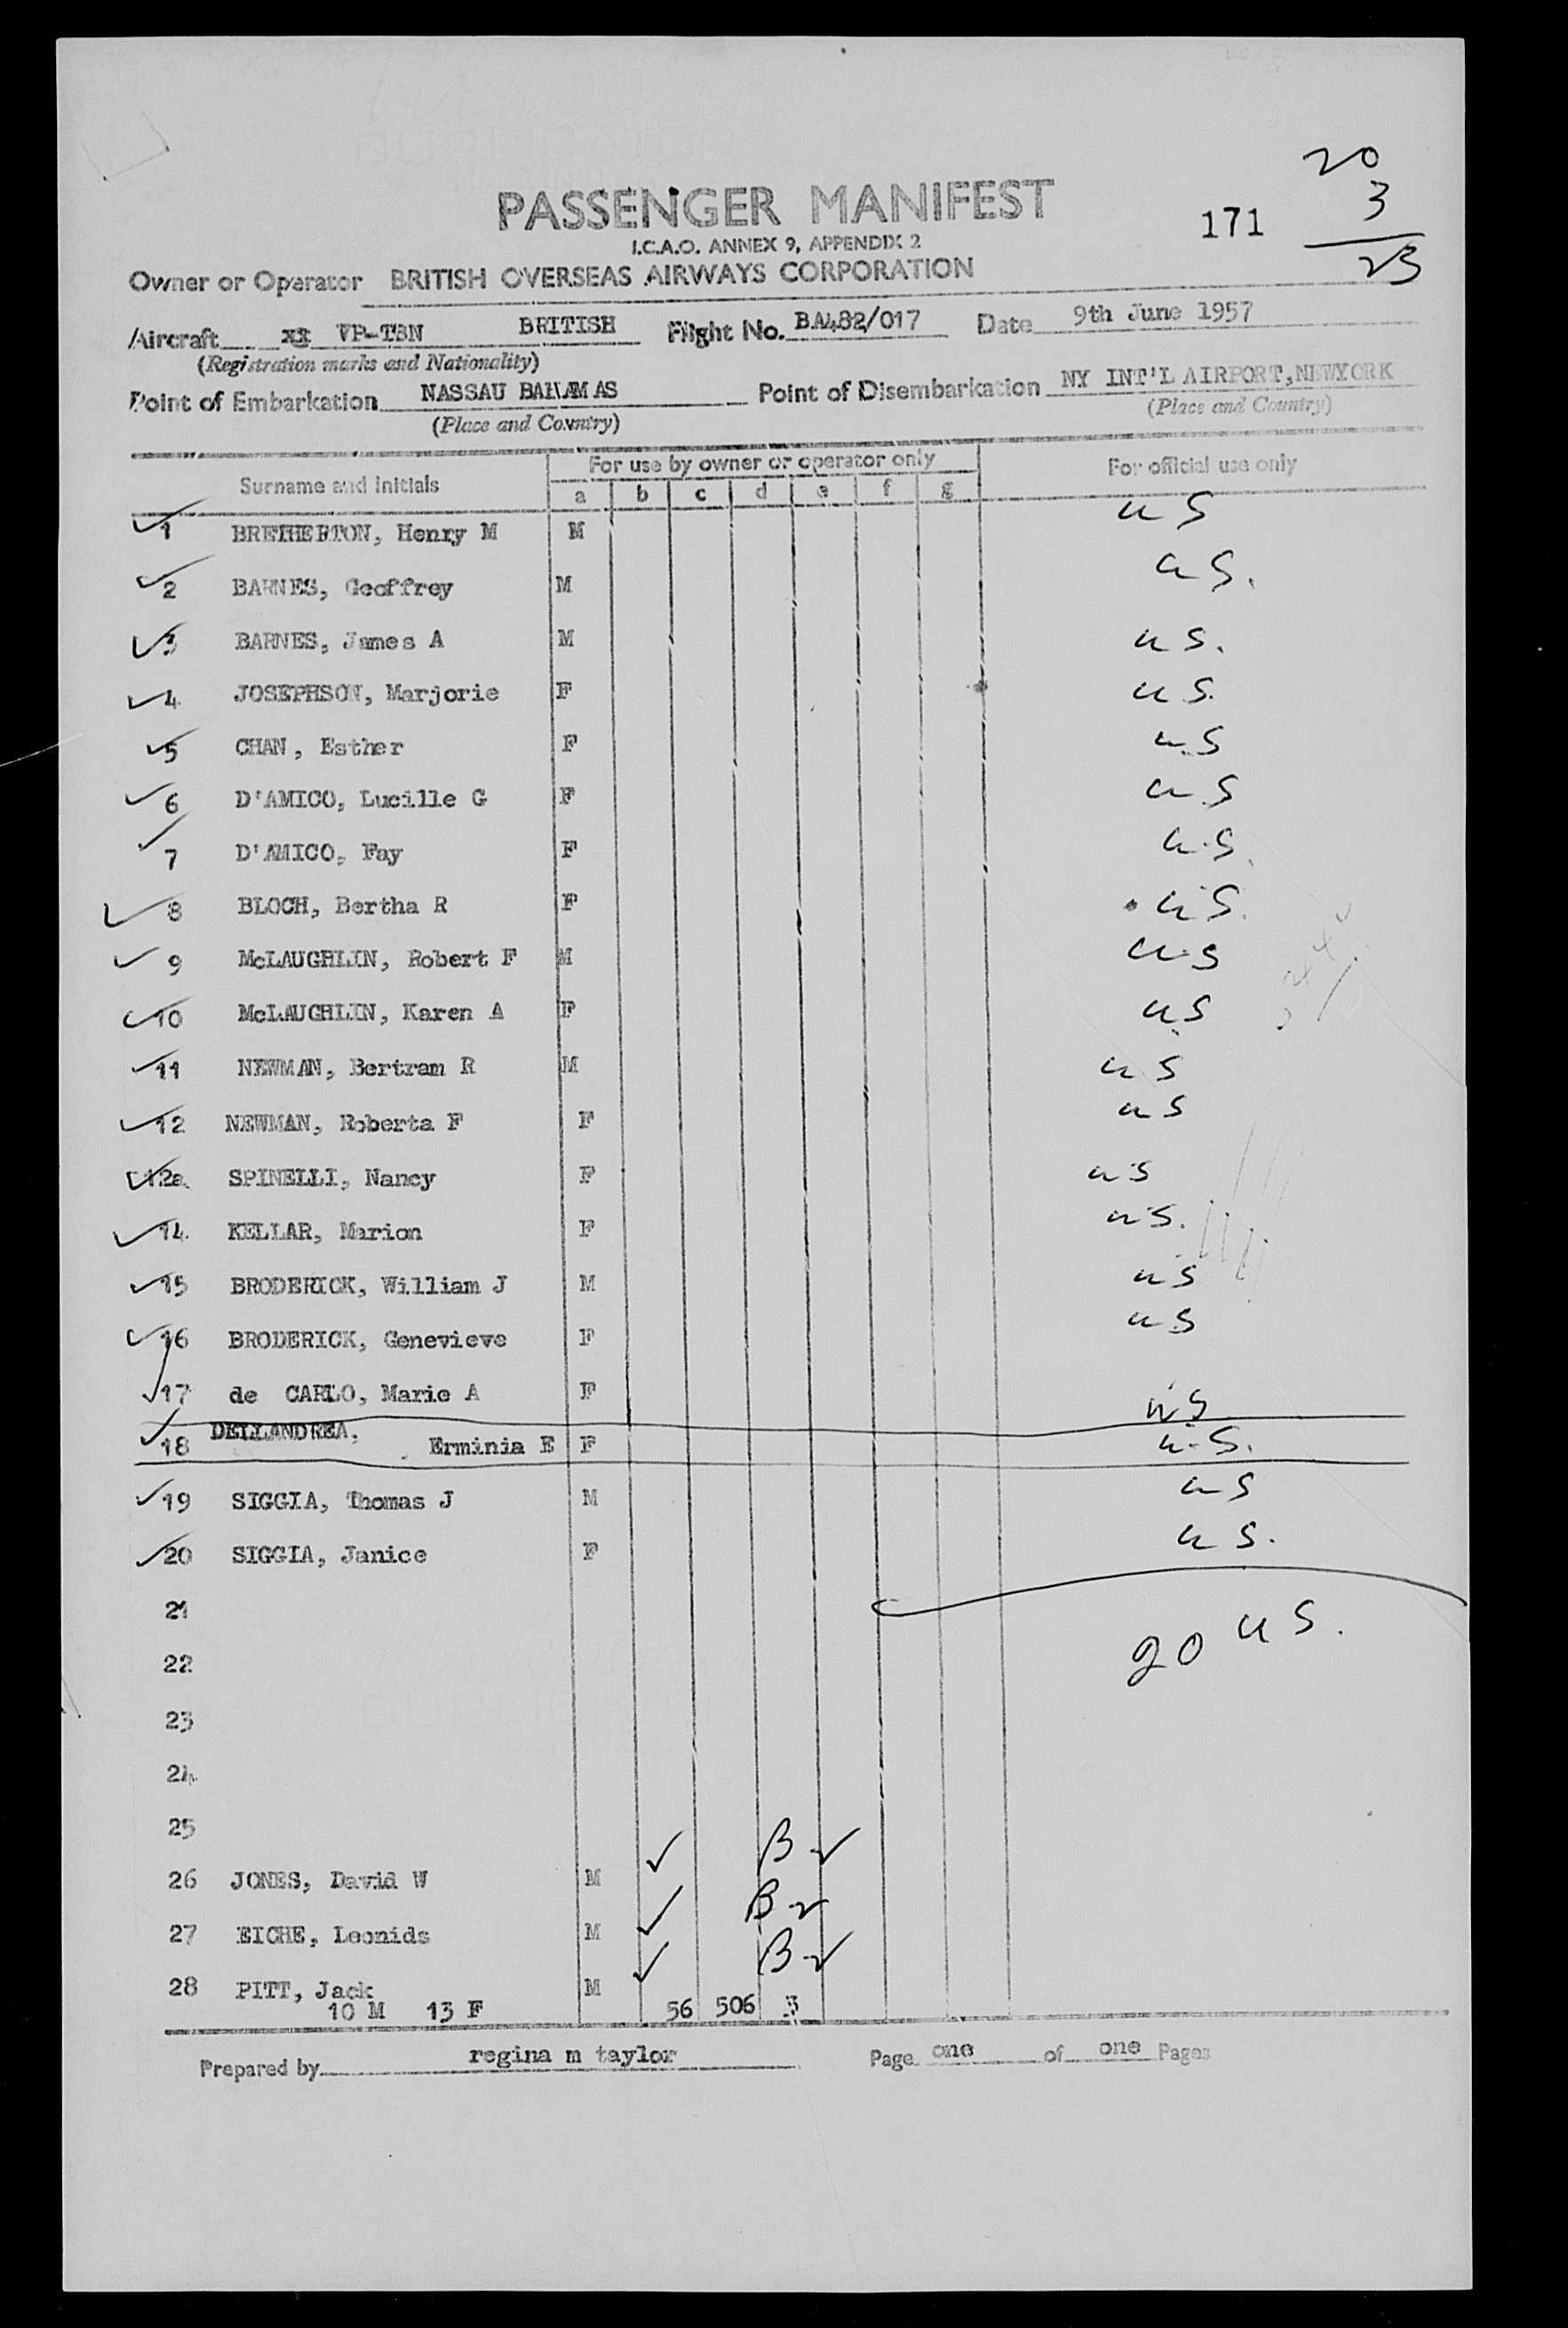 20
3
23
PASSENGER MANIFEST
171
I.C.A.O. ANNEX 9, APPENDIX 2
Owner or Operator BRITISH OVERSEAS AIRWAYS CORPORATION
Aircraft VP-TBN BRITISH Flight No. BA482/017 Date 9th June 1957
(Registration marks and Nationality)
Point of Embarkation NASSAU BAHAMAS Point of Disembarkation NY INT'L AIRPORT, NEWYORK
(Place and Country) (Place and Country)
Surname and Initials For use by owner or operator only For official use only
a b c d e f g
1 BRETHERTON, Henry M M US
2 BARNES, Geoffrey M US.
3 BARNES, James A M US.
4 JOSEPHSON, Marjorie F US.
5 CHAN, Esther F US
6 D'AMICO, Lucille G F US
7 D'AMICO, Fay F U.S.
8 BLOCH, Bertha R F US.
9 McLAUGHLIN, Robert F M U.S
10 McLAUGHLIN, Karen A F US
11 NEWMAN, Bertram R M US
12 NEWMAN, Roberta F F US
12a SPINELLI, Nancy F US
14 KELLAR, Marion F US.
15 BRODERICK, William J M US
16 BRODERICK, Genevieve F US
17 de CARLO, Marie A F US
18 DELLANDREA, Erminia E F U.S.
19 SIGGIA, Thomas J M US
20 SIGGIA, Janice F US.
21
20 US.
22
23
24
25
26 JONES, David W M B
27 EICHE, Leonids M B
28 PITT, Jack M B
10 M 13 F 56 506 3
Prepared by regina m taylor Page one of one Pages